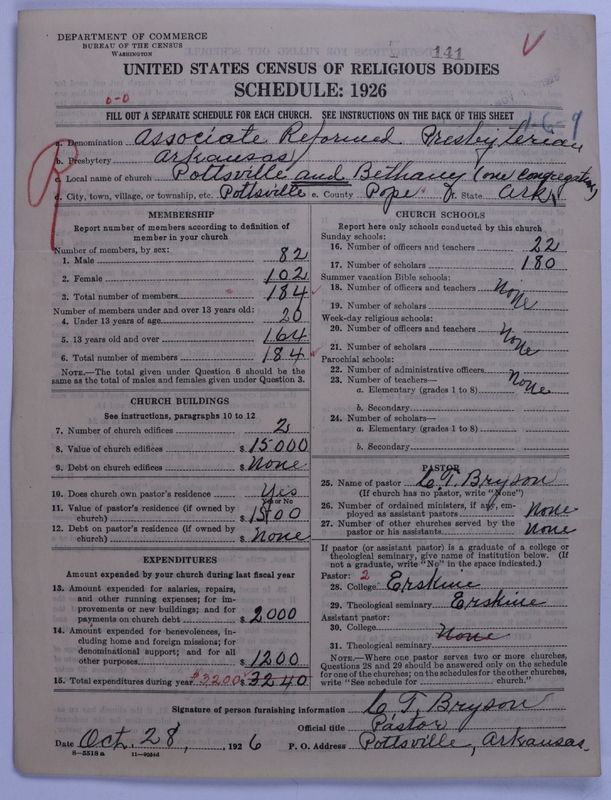 DEPARTMENT OF COMMERCE
BUREAU OF THE CENSUS
WASHINGTON
141
UNITED STATES CENSUS OF RELIGIOUS BODIES
SCHEDULE: 1926
0-0
FILL OUT A SEPARATE SCHEDULE FOR EACH CHURCH. SEE INSTRUCTIONS ON THE BACK OF THIS SHEET
1-6-9
a. Denomination Associate Reformed Presbyterian
b. Presbytery Arkansas
c. Local name of church Pottsville and Bethany (one congregation)
d. City, town, village, or township, etc. Pottsville e. County Pope f. State Ark
MEMBERSHIP
Report number of members according to definition of
member in your church
Number of members, by sex:
1. Male 82
2. Female 102
3. Total number of members 184
Number of members under and over 13 years old:
4. Under 13 years of age 20
5. 13 years old and over 164
6. Total number of members 184
NOTE.—The total given under Question 6 should be the
same as the total of males and females given under Question 3.
CHURCH BUILDINGS
See instructions, paragraphs 10 to 12
7. Number of church edifices 2
8. Value of church edifices $15000
9. Debt on church edifices $None
10. Does church own pastor's residence Yes
Yes or No
11. Value of pastor's residence (if owned by
church) $1500
12. Debt on pastor's residence (if owned by
church) $None
EXPENDITURES
Amount expended by your church during last fiscal year
13. Amount expended for salaries, repairs,
and other running expenses; for im-
provements or new buildings; and for
payments on church debt $2000
14. Amount expended for benevolences, in-
cluding home and foreign missions; for
denominational support; and for all
other purposes $1200
15. Total expenditures during year $3200 $3240
CHURCH SCHOOLS
Report here only schools conducted by this church
Sunday schools:
16. Number of officers and teachers 22
17. Number of scholars 180
Summer vacation Bible schools:
18. Number of officers and teachers None
19. Number of scholars
Week-day religious schools:
20. Number of officers and teachers None
21. Number of scholars
Parochial schools:
22. Number of administrative officers
23. Number of teachers— None
a. Elementary (grades 1 to 8)
b. Secondary
24. Number of scholars—
a. Elementary (grades 1 to 8)
b. Secondary
PASTOR
25. Name of pastor C. T. Bryson
(If church has no pastor, write "None")
26. Number of ordained ministers, if any, em-
ployed as assistant pastors None
27. Number of other churches served by the
pastor or his assistants None
If pastor (or assistant pastor) is a graduate of a college or
theological seminary, give name of institution below. (If
not a graduate, write "No" in the space indicated.)
Pastor: 2
28. College Erskine
29. Theological seminary Erskine
Assistant pastor:
30. College None
31. Theological seminary
NOTE.—Where one pastor serves two or more churches,
Questions 28 and 29 should be answered only on the schedule
for one of the churches; on the schedules for the other churches,
write "See schedule for church."
Signature of person furnishing information C. T. Bryson
Official title Pastor
Date Oct. 28, 1926 P. O. Address Pottsville, Arkansas.
8—5518 a